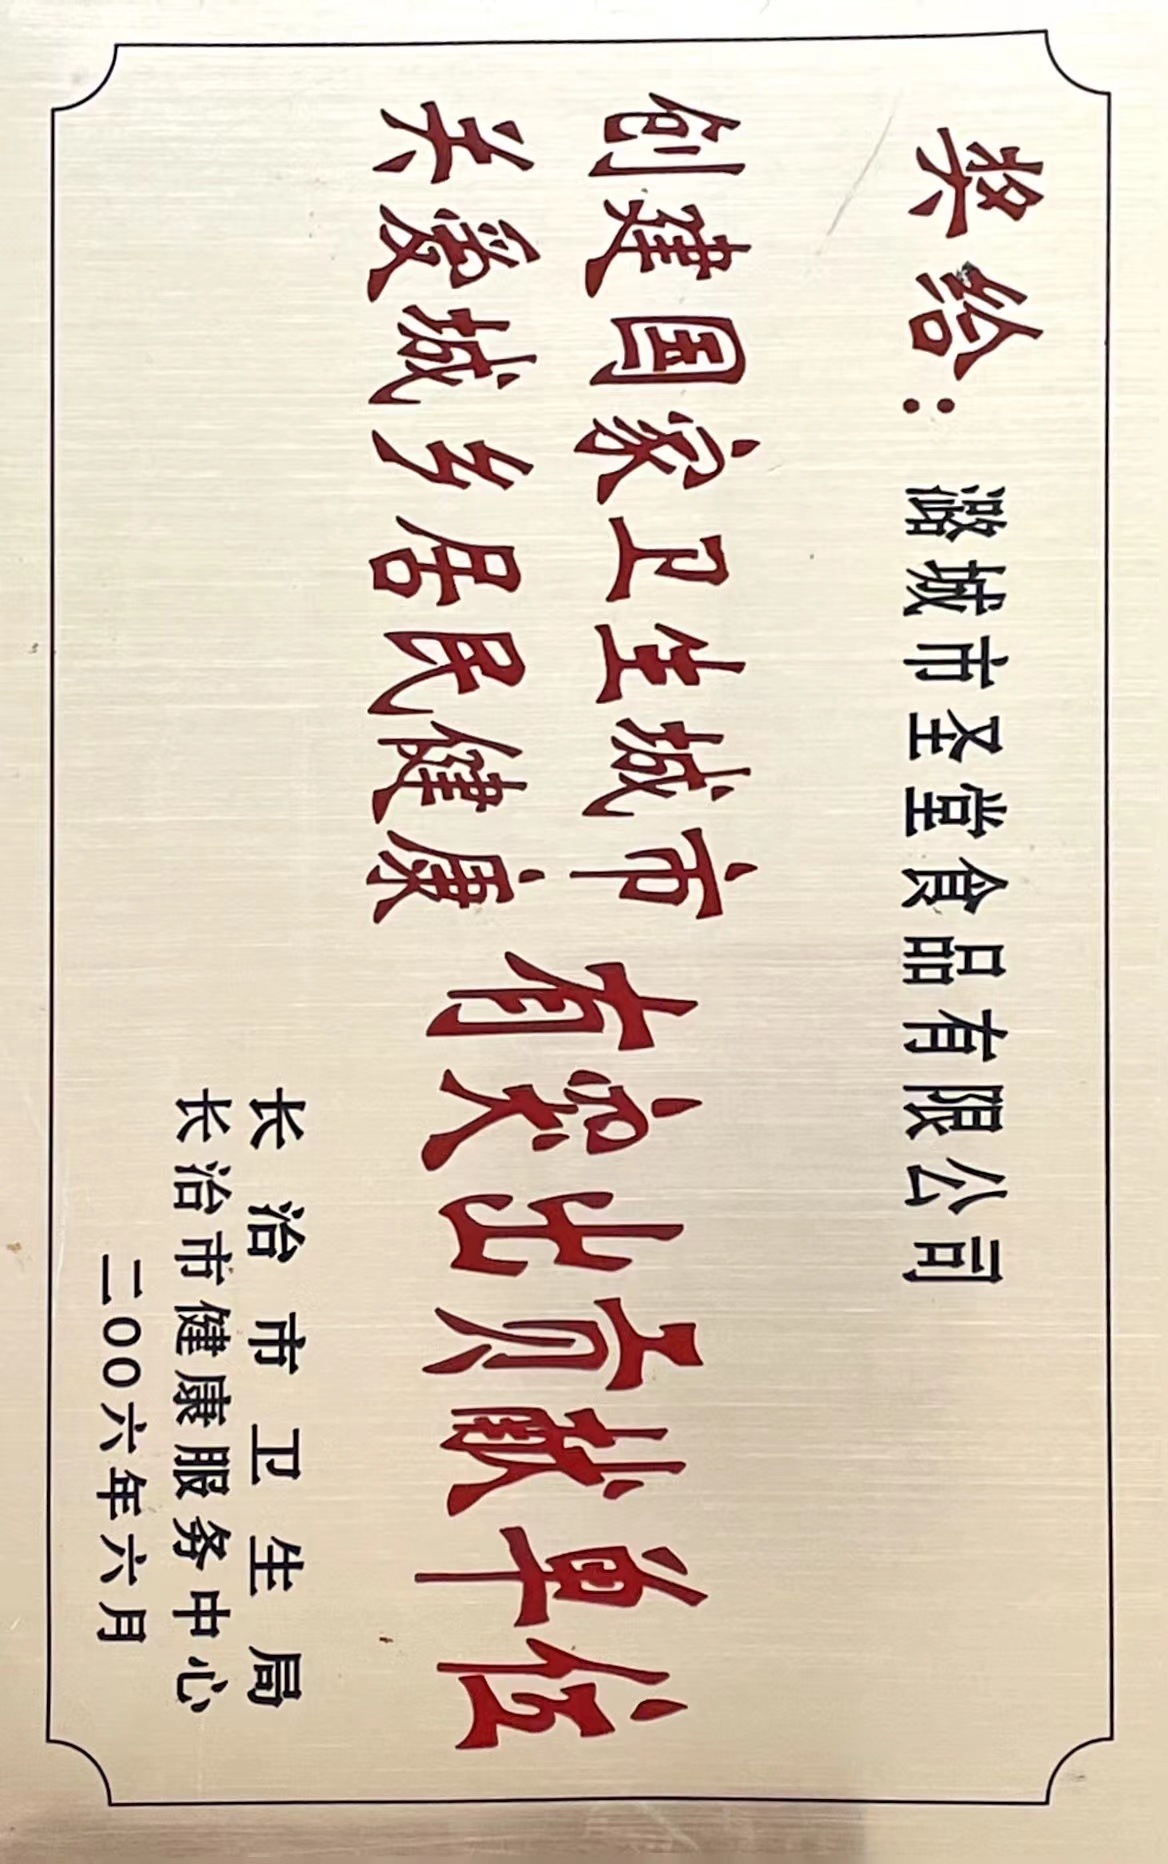 奖给：潞城市圣堂食品有限公司
创建国家卫生城市
关爱城乡居民健康
有突出贡献单位
长治市卫生局
长治市健康服务中心
二〇〇六年六月